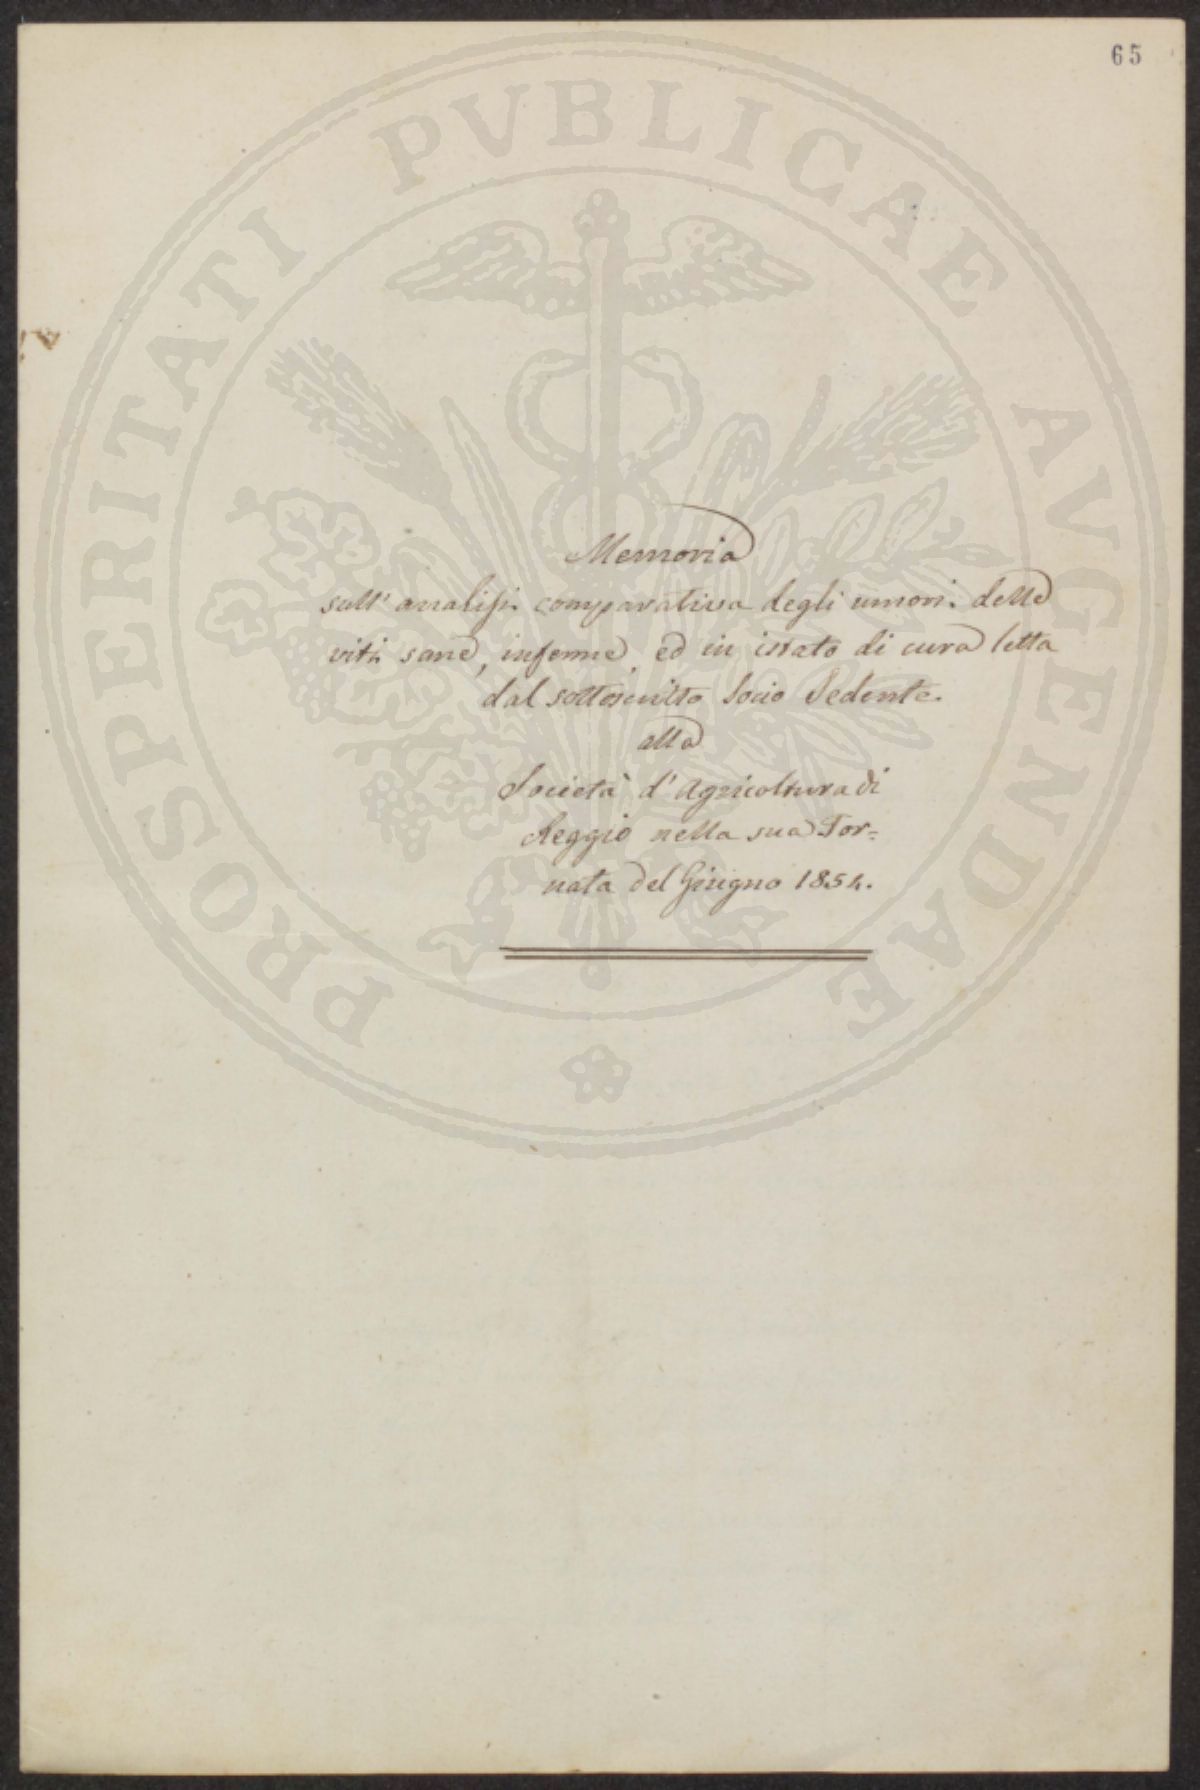 65
PROSPERITATI PVBLICAE AVGENDAE
Memoria
sull' analisi comparativa degli umori delle
viti sane, inferme, ed in istato di cura letta
dal sottoscritto Socio Sedente.
alla
Società d' Agricoltura di
Reggio nella sua Tor=
nata del Giugno 1854.